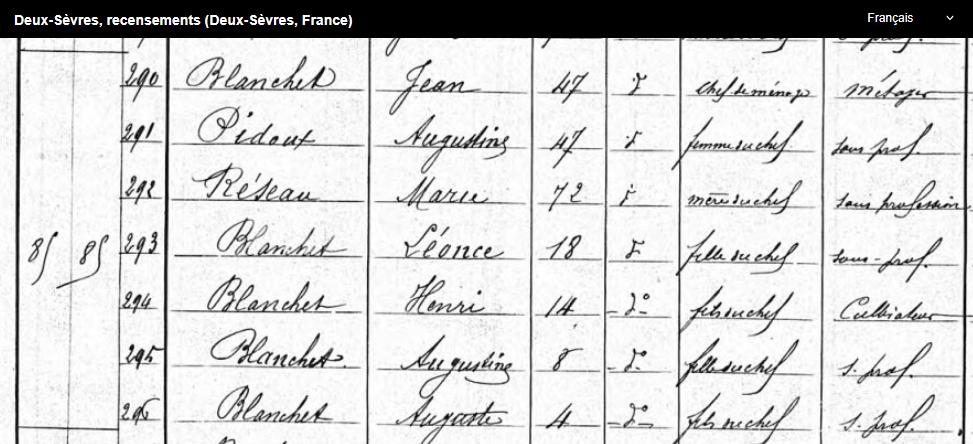 Deux-Sèvres, recensements (Deux-Sèvres, France)
Français
290 Blanchet Jean 47 F chef de ménage Métayer
291 Pidoux Augustine 47 F femme du chef sans prof.
292 Réseau Marie 72 F mère du chef sans profession
85 85 293 Blanchet Léonce 18 F fille du chef sans-prof.
294 Blanchet Henri 14 do fils du chef Cultivateur
295 Blanchet Augustine 8 do fille du chef s. prof.
296 Blanchet Auguste 4 do fils du chef s. prof.